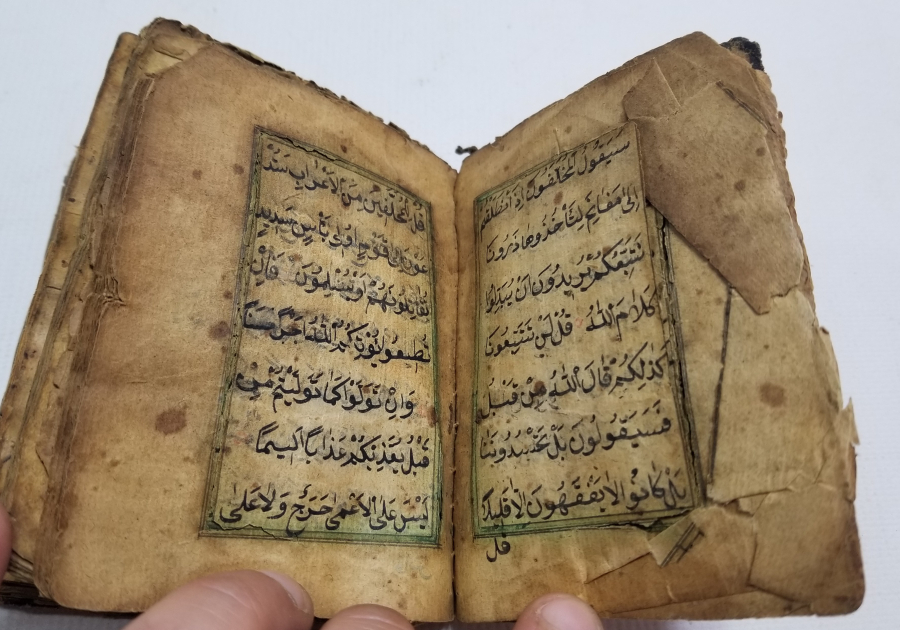 سَيَقُولُ لْمُخَلَّفُونَ اِذَا انْطَلَقْتُمْ
اِلٰى مَغَانِمَ لِتَأْخُذُوهَا ذَرُونَا
نَتَّبِعْكُمْ يُرِيدُونَ اَنْ يُبَدِّلُوا
كَلَامَ اللّٰهِ قُلْ لَنْ تَتَّبِعُونَا
كَذٰلِكُمْ قَالَ اللّٰهُ مِنْ قَبْلُ
فَسَيَقُولُونَ بَلْ تَحْسُدُونَنَا
بَلْ كَانُوا لَا يَفْقَهُونَ اِلَّا قَلِيلًا
قل
قُلْ لِلْمُخَلَّفِينَ مِنَ الْاَعْرَابِ سَتُدْ
عَوْنَ اِلٰى قَوْمٍ اُولِى بَأْسٍ شَدِيدٍ
تُقَاتِلُونَهُمْ اَوْ يُسْلِمُونَ فَاِنْ
تُطِيعُوا يُؤْتِكُمُ اللّٰهُ اَجْرًا حَسَنًا
وَاِنْ تَتَوَلَّوْا كَمَا تَوَلَّيْتُمْ مِنْ
قَبْلُ يُعَذِّبْكُمْ عَذَابًا اَلِيمًا
لَيْسَ عَلَى الْاَعْمٰى حَرَجٌ وَلَا عَلَى